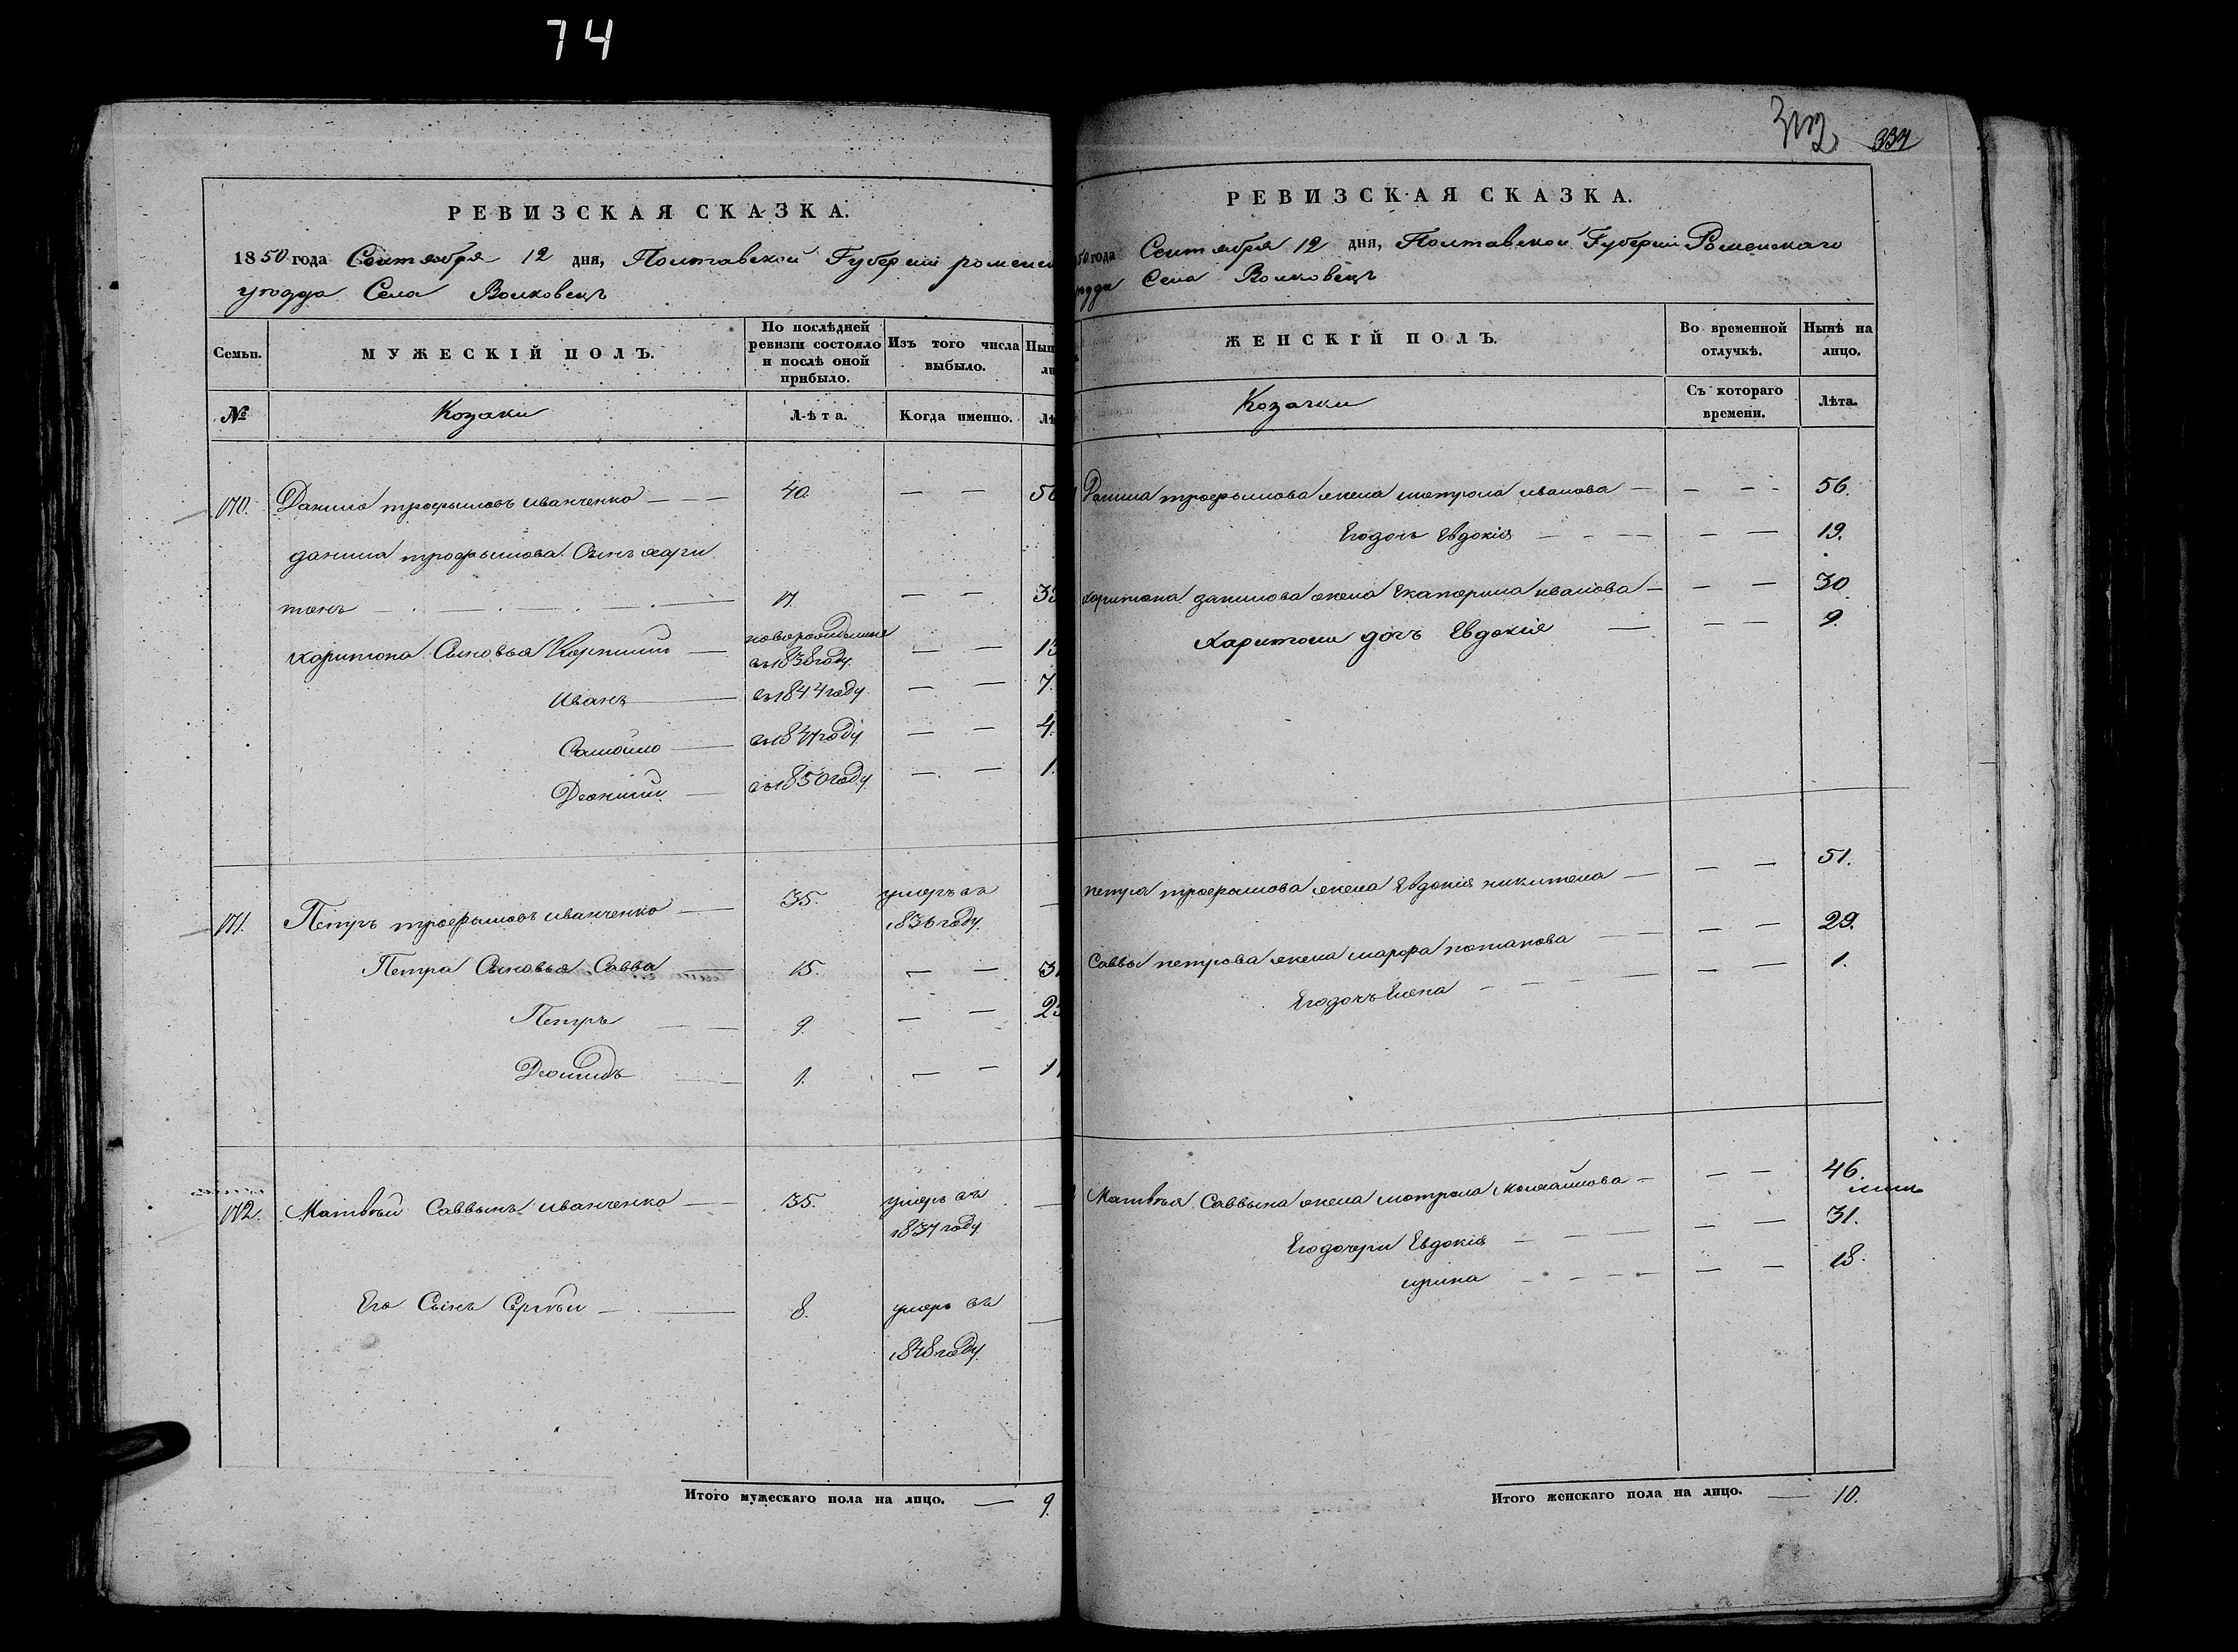 74
РЕВИЗСКАЯ СКАЗКА.
1850 года Сентября 12 дня, Полтавской Губерніи роменск
уѣзда Села Волковецъ
Семьи.
МУЖЕСКІЙ ПОЛЪ.
По послѣдней ревизіи состояло и послѣ оной прибыло.
Изъ того числа выбыло.
№
Козаки
Лѣта.
Когда именно.
170. Данило трофымовъ иванченко — — — 40. — —
данила трофымова Сынъ хари
тонъ — 17. — — 33
харитона Сыновья Корнилій — новорожденные въ 1838 году — — 13
Иванъ — въ 1844 году — — 7.
Самойло — въ 1847 году — — 4.
Деонисій — въ 1850 году — — 1.
171. Петръ трофымовъ иванченко — 35. умеръ въ 1836 году. —
Петра Сыновья Савва — 15. — — 31
Петръ — — 9. — — 25
Деомидъ — — 1. — — 17
172. Матвѣй Саввынъ иванченко — 35. умеръ въ 1837 году —
Его Сынъ Сергѣй — 8. умеръ въ 1848 году. —
Итого мужескаго пола на лицо. — 9.
334
РЕВИЗСКАЯ СКАЗКА.
50 года Сентября 12 дня, Полтавской Губерніи Роменскаго
Села Волковецъ
ЖЕНСКІЙ ПОЛЪ.
Во временной отлучкѣ.
Нынѣ на лицо.
Козачки
Съ котораго времени.
Лѣта.
Данила трофымова жена мотрона иванова — — — 56.
Его дочь Евдокія — — — — — 19.
харитона данилова жена Екатерина иванова — — — 30
Харитона дочъ Евдокія — — — 9.
петра трофымова жена Евдокія никитена — — — 51.
Саввы петрова жена марфа потапова — — — — 29.
Его дочъ Елена — — — — — 1.
Матвѣя Саввына жена мотрона — — — 46.
Его дочери Евдокія — — — — — 31.
ирина — — — — — — 18.
Итого женскаго пола на лицо. — 10.